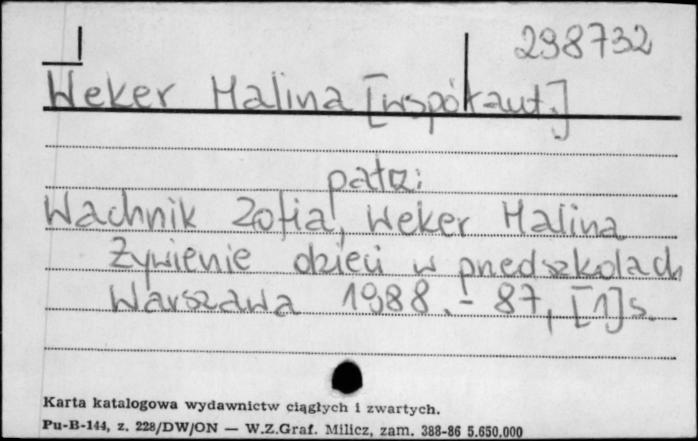 298732
Weker Halina [współaut.]
patrz:
Wachnik Zofia, Weker Halina
Żywienie dzieci w przedszkolach
Warszawa 1988. - 87, [1]s.
Karta katalogowa wydawnictw ciągłych i zwartych.
Pu-B-144, z. 228/DW/ON — W.Z.Graf. Milicz, zam. 388-86 5.650.000